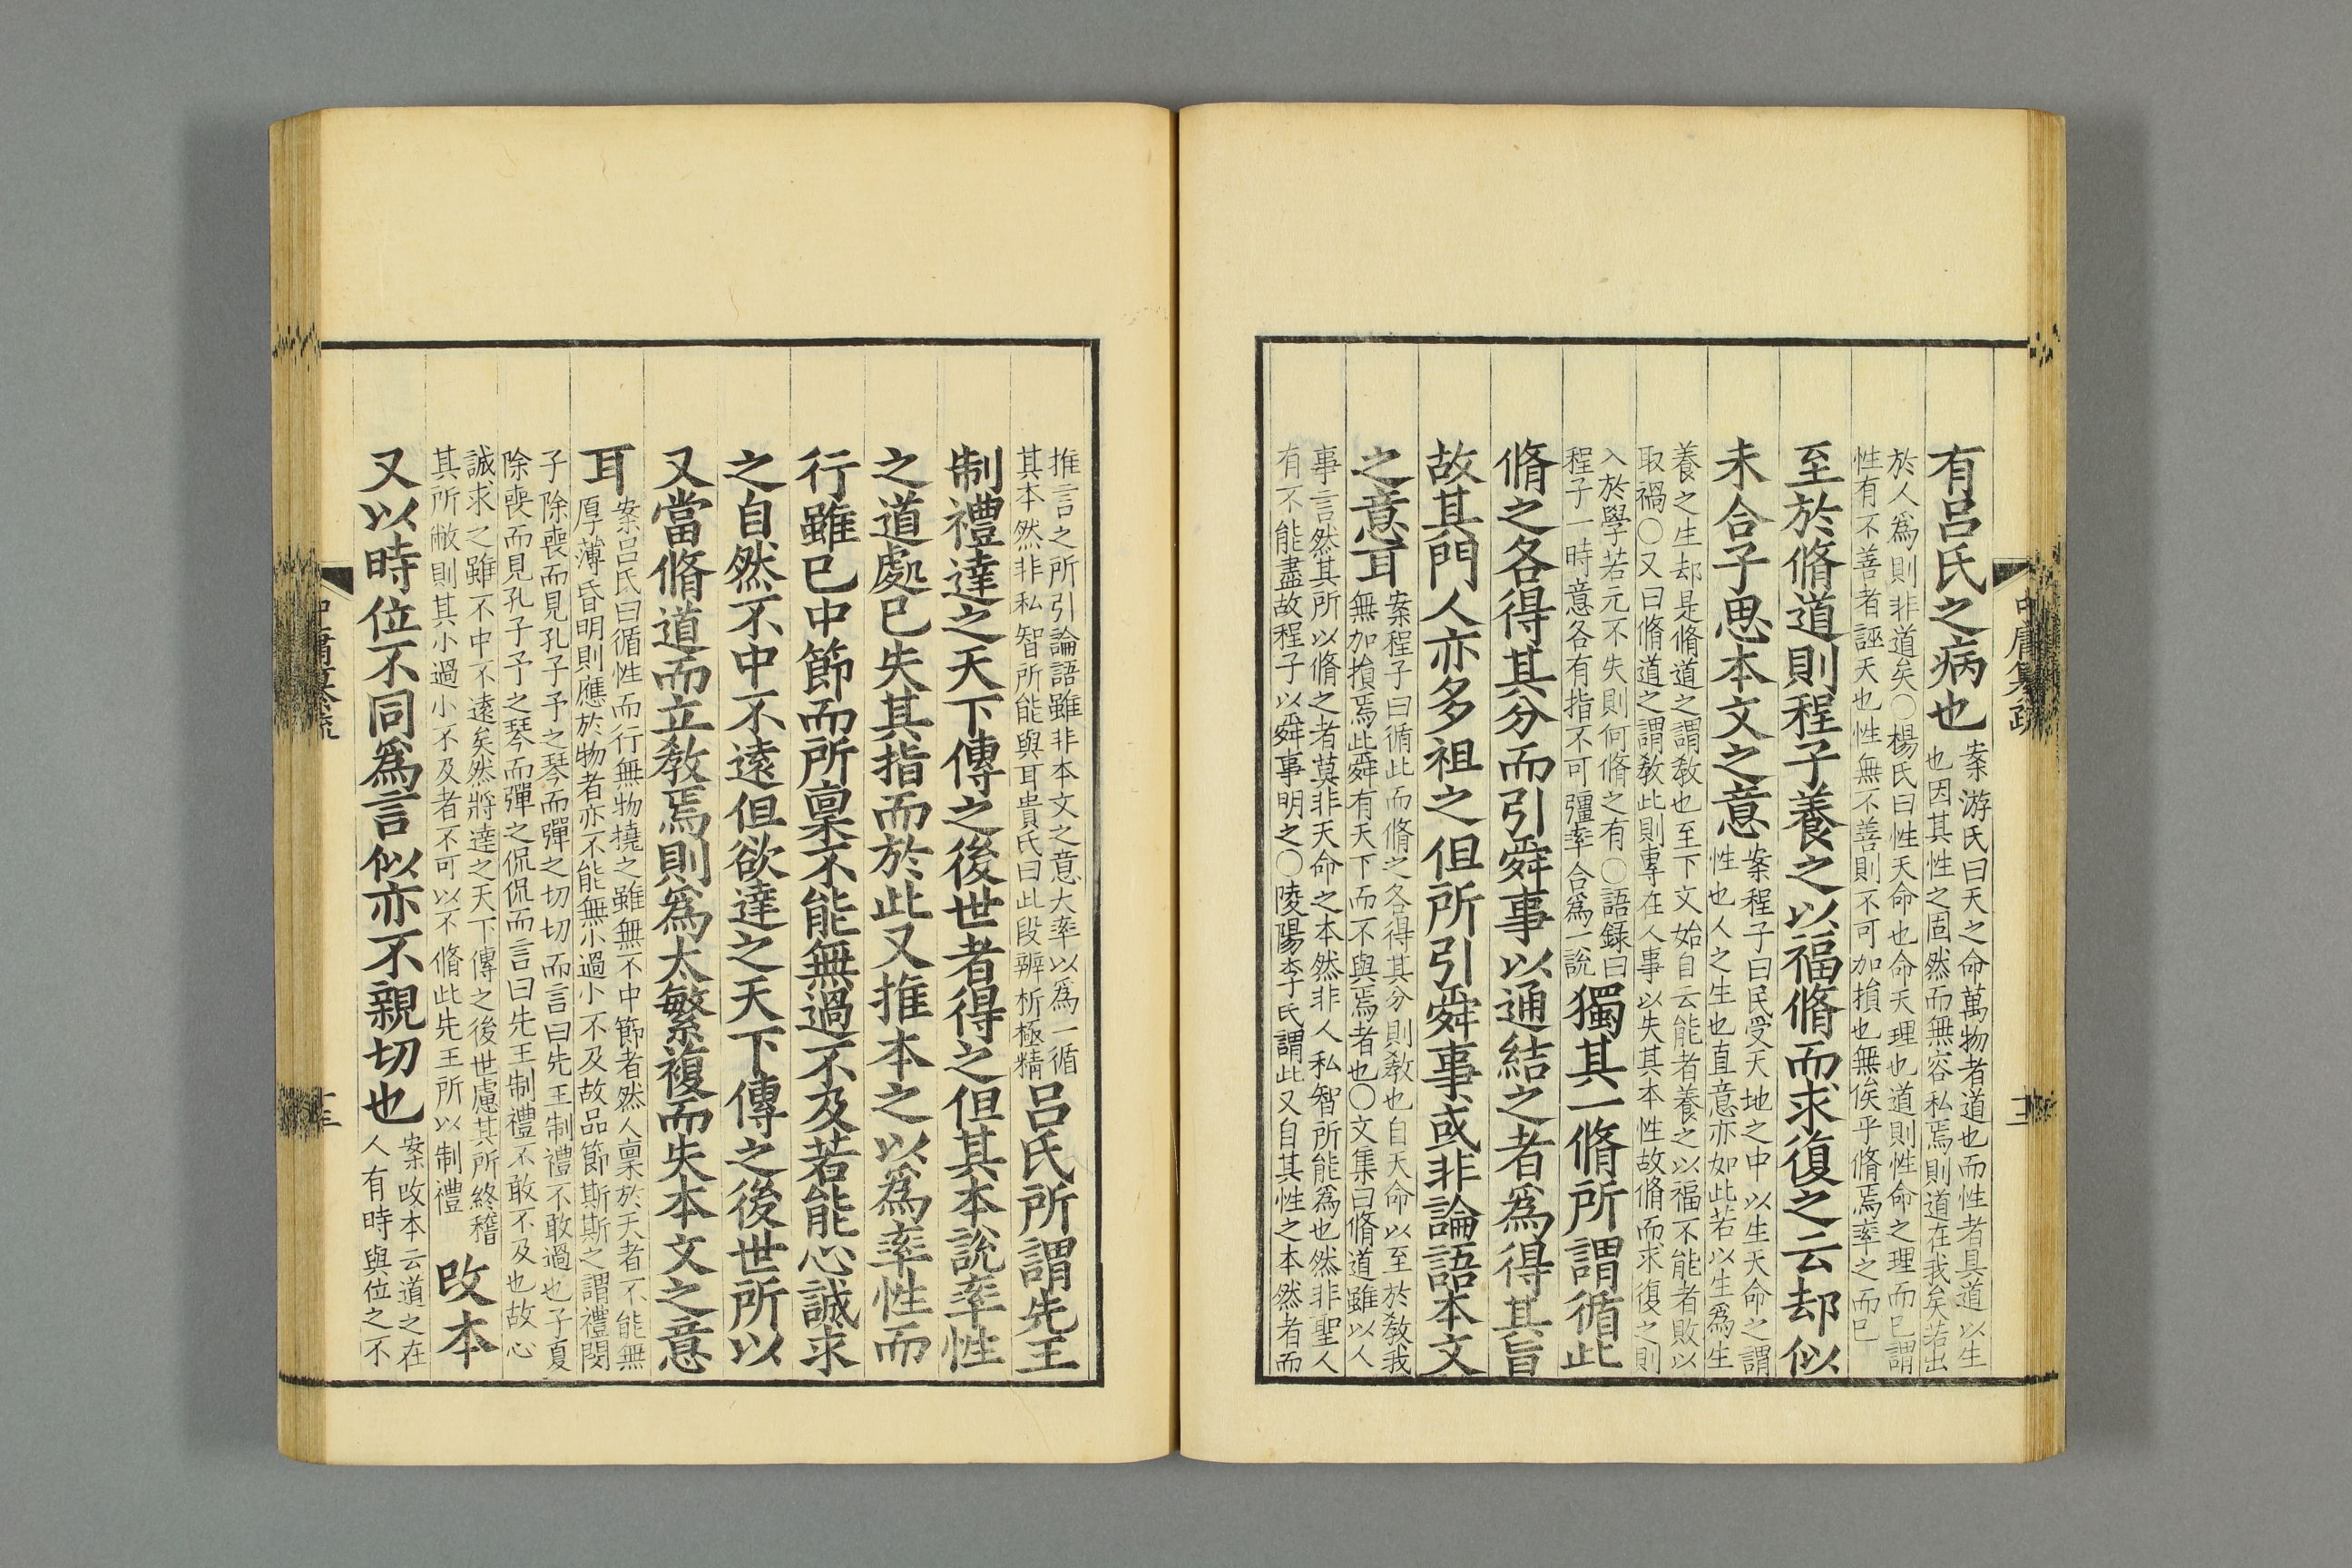 中庸集疏
有呂氏之病也
案游氏曰天之命萬物者道也而性者具道以生
也因其性之固然而無容私焉則道在我矣若出
於人爲則非道矣○楊氏曰性天命也命天理也道則性命之理而已謂
性有不善者誣天也性無不善則不可加損也無俟乎脩焉率之而已
至於脩道則程子養之以福脩而求復之云却似
未合子思本文之意
案程子曰民受天地之中以生天命之謂
性也人之生也直意亦如此若以生爲生
養之生却是脩道之謂教也至下文始自云能者養之以福不能者敗以
取禍○又曰脩道之謂教此則專在人事以失其本性故脩而求復之則
入於學若元不失則何脩之有○語録曰
程子一時意各有指不可彊牽合爲一說
獨其一脩所謂循此
脩之各得其分而引舜事以通結之者爲得其旨
故其門人亦多祖之但所引舜事或非論語本文
之意耳
案程子曰循此而脩之各得其分則教也自天命以至於教我
無加損焉此舜有天下而不與焉者也○文集曰脩道雖以人
事言然其所以脩之者莫非天命之本然非人私智所能爲也然非聖人
有不能盡故程子以舜事明之○陵陽李氏謂此又自其性之本然者而
推言之所引論語雖非本文之意大率以爲一循
其本然非私智所能與耳貴氏曰此段辨析極精
呂氏所謂先王
制禮達之天下傳之後世者得之但其本說率性
之道處已失其指而於此又推本之以爲率性而
行雖已中節而所稟不能無過不及若能心誠求
之自然不中不遠但欲達之天下傳之後世所以
又當脩道而立教焉則爲太繁複而失本文之意
耳
案呂氏曰循性而行無物撓之雖無不中節者然人稟於天者不能無
厚薄昏明則應於物者亦不能無小過小不及故品節斯斯之謂禮閔
子除喪而見孔子予之琴而彈之切切而言曰先王制禮不敢過也子夏
除喪而見孔子予之琴而彈之侃侃而言曰先王制禮不敢不及也故心
誠求之雖不中不遠矣然將達之天下傳之後世慮其所終稽
其所敝則其小過小不及者不可以不脩此先王所以制禮
改本
又以時位不同爲言似亦不親切也
案改本云道之在
人有時與位之不